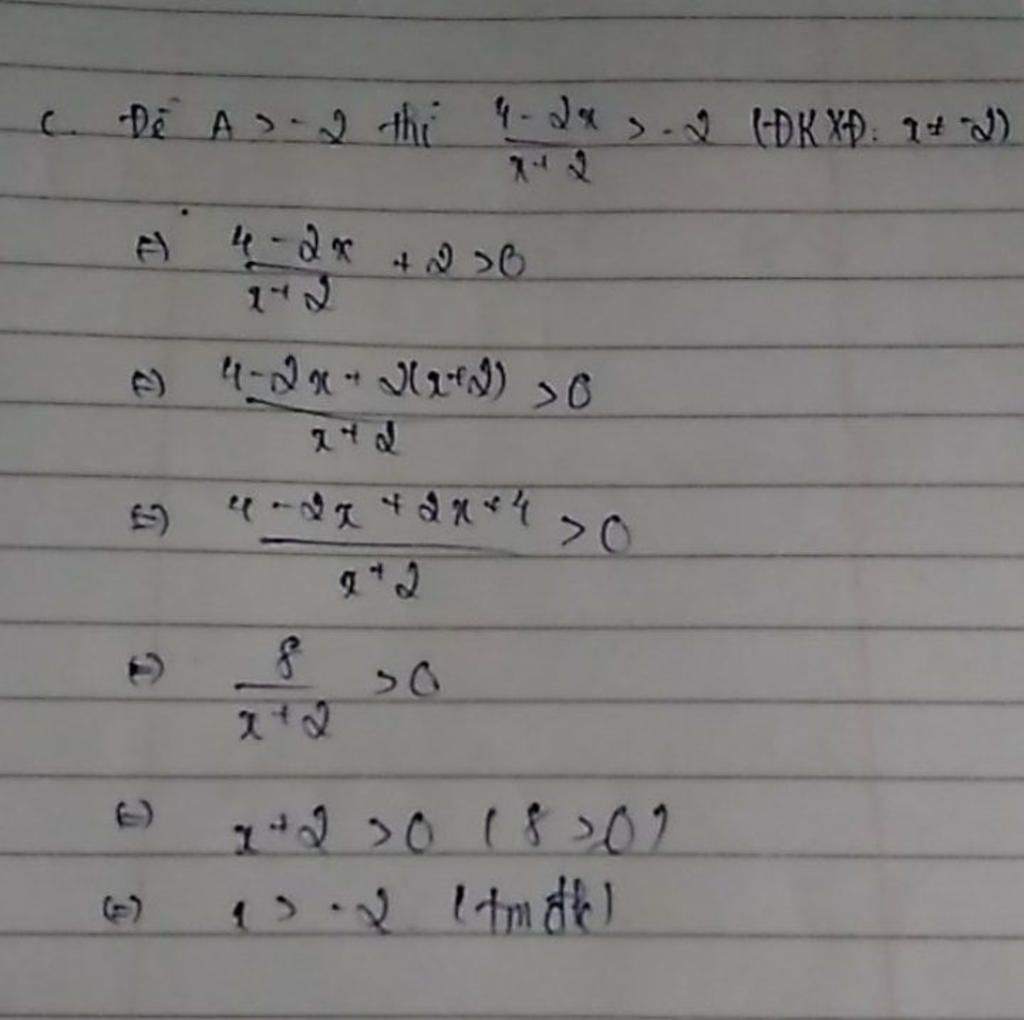 c. Để A > -2 thì \frac{4-2x}{x+2} > -2 (ĐKXĐ: x ≠ -2)
(=) \frac{4-2x}{x+2} + 2 > 0
(=) \frac{4-2x+2(x+2)}{x+2} > 0
(=) \frac{4-2x+2x+4}{x+2} > 0
(=) \frac{8}{x+2} > 0
(=) x+2 > 0 (8 > 0)
(=) x > -2 (tmđk)